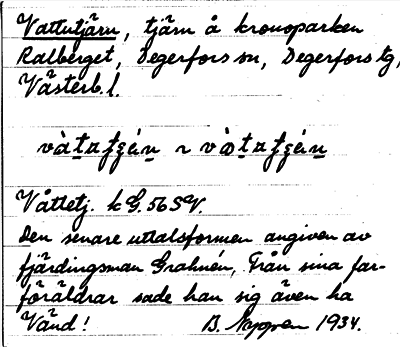 Vattutjärn, tjärn å kronoparken
Ralberget, Degerfors sn, Degerfors tg,
Västerb. l.
Våttetj. k G. 56 SV.
Den senare uttalsformen angiven av
fjärdingsman Grahnén, Från sina far-
föräldrar sade han sig även ha
Vänd! B. Nygren 1934.